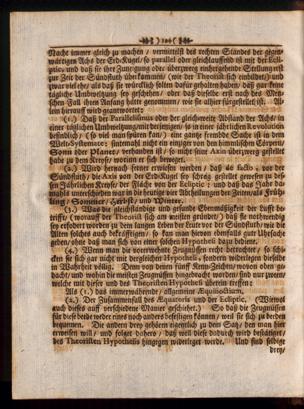 Nacht immer gleich zu machen / vermittelst des rechten Standes der gegen-
wärtigen Achs der Erd-Kugel / so parallel oder gleichlauffend ist mit der Ecli-
ptic / und daß sie ihre Zuneigung oder überzwerg einhergehende Stellung erst
zur Zeit der Sündfluth überkommen / (wie der Theorist sich einbildet) und
zwar viel ehe / als daß sie würcklich solten dafür gehalten haben / daß gar keine
tägliche Umbwältzung sey geschehen / oder daß dieselbe erst nach des
schen Fall ihren Anfang hätte genommen / wie sie alhier fürgestellet ist. Al-
lein hierauff wird geantwortet:
(1.) Daß der Parallelismus oder der gleichweite Abstand der Achs / in
einer täglichen Umbwältzung
befindlich / (so viel man sehen kan / ) eine gantz frembde Sache ist in dem
Welt-Systemate; sintemahl nicht ein einziger von den himmlischen Cörpern /
Sonn oder Planet / verhanden ist / so nicht seine Axin überzwerg gestellet
habe zu dem Kreyse / worinn er sich beweget.
(2.) Wird hernach ferner erwiesen werden / daß de facto, vor der
Sündfluth / die Axis von der Erd-Kugel so schreg gestellet gewesen zu des-
sen Jährlichen Kreyse oder Fläche von der Ecliptic; und daß das Jahr da-
mahls unterschieden war in die heutige vier Abtheilungen der Zeiten / als Früh-
ling / Sommer / Herbst / und Winter.
(3.) Was die gleichständige und gesunde Ebenmäßigkeit der Lufft be-
trifft / (worauff der Theorist sich am meisten gründet / ) daß sie nothwendig
sey erfodert worden zu dem langen Leben der Leute vor der Sündfluth / wie die
Alten solches auch bekräfftigen / so kan man hievon ebenfalls gute Ursache
geben / ohne daß man sich von einer solchen Hypothesi dazu bediene.
(4.) Wenn man die vorerwehnte Zeugnissen recht betrachtet / so schi-
cken sie sich gar nicht mit dergleichen Hypothesi, sondern widerlegen dieselbe
in Wahrheit völlig. Denn von denen fünff Kenn-Zeichen / wovon oben ge-
dacht / und wohin die meisten Zeugnissen hingebracht werden / sind nur zween /
welche mit dieser und des Theoristen Hypothesi überein treffen:
Als (1.) das immerwährende / allgemeine Æquinoctium.
(2.) Der Zusammenfall des Æquatoris und der Ecliptic. (Wiewol
auch dieses auff verschiedene Manier geschiehet.) So daß die Zeugnüssen
für diese beide weder eines noch anders befestigen können / weil sie sich zu beeden
bequemen. Die andern drey gehören eigentlich zu dem Satz / den man hier
erweisen will / und folget dahero / daß weil diese dadurch wird bestätiget /
des Theoristen Hypothesis hingegen widerleget werde. Und sind selbige
drey /